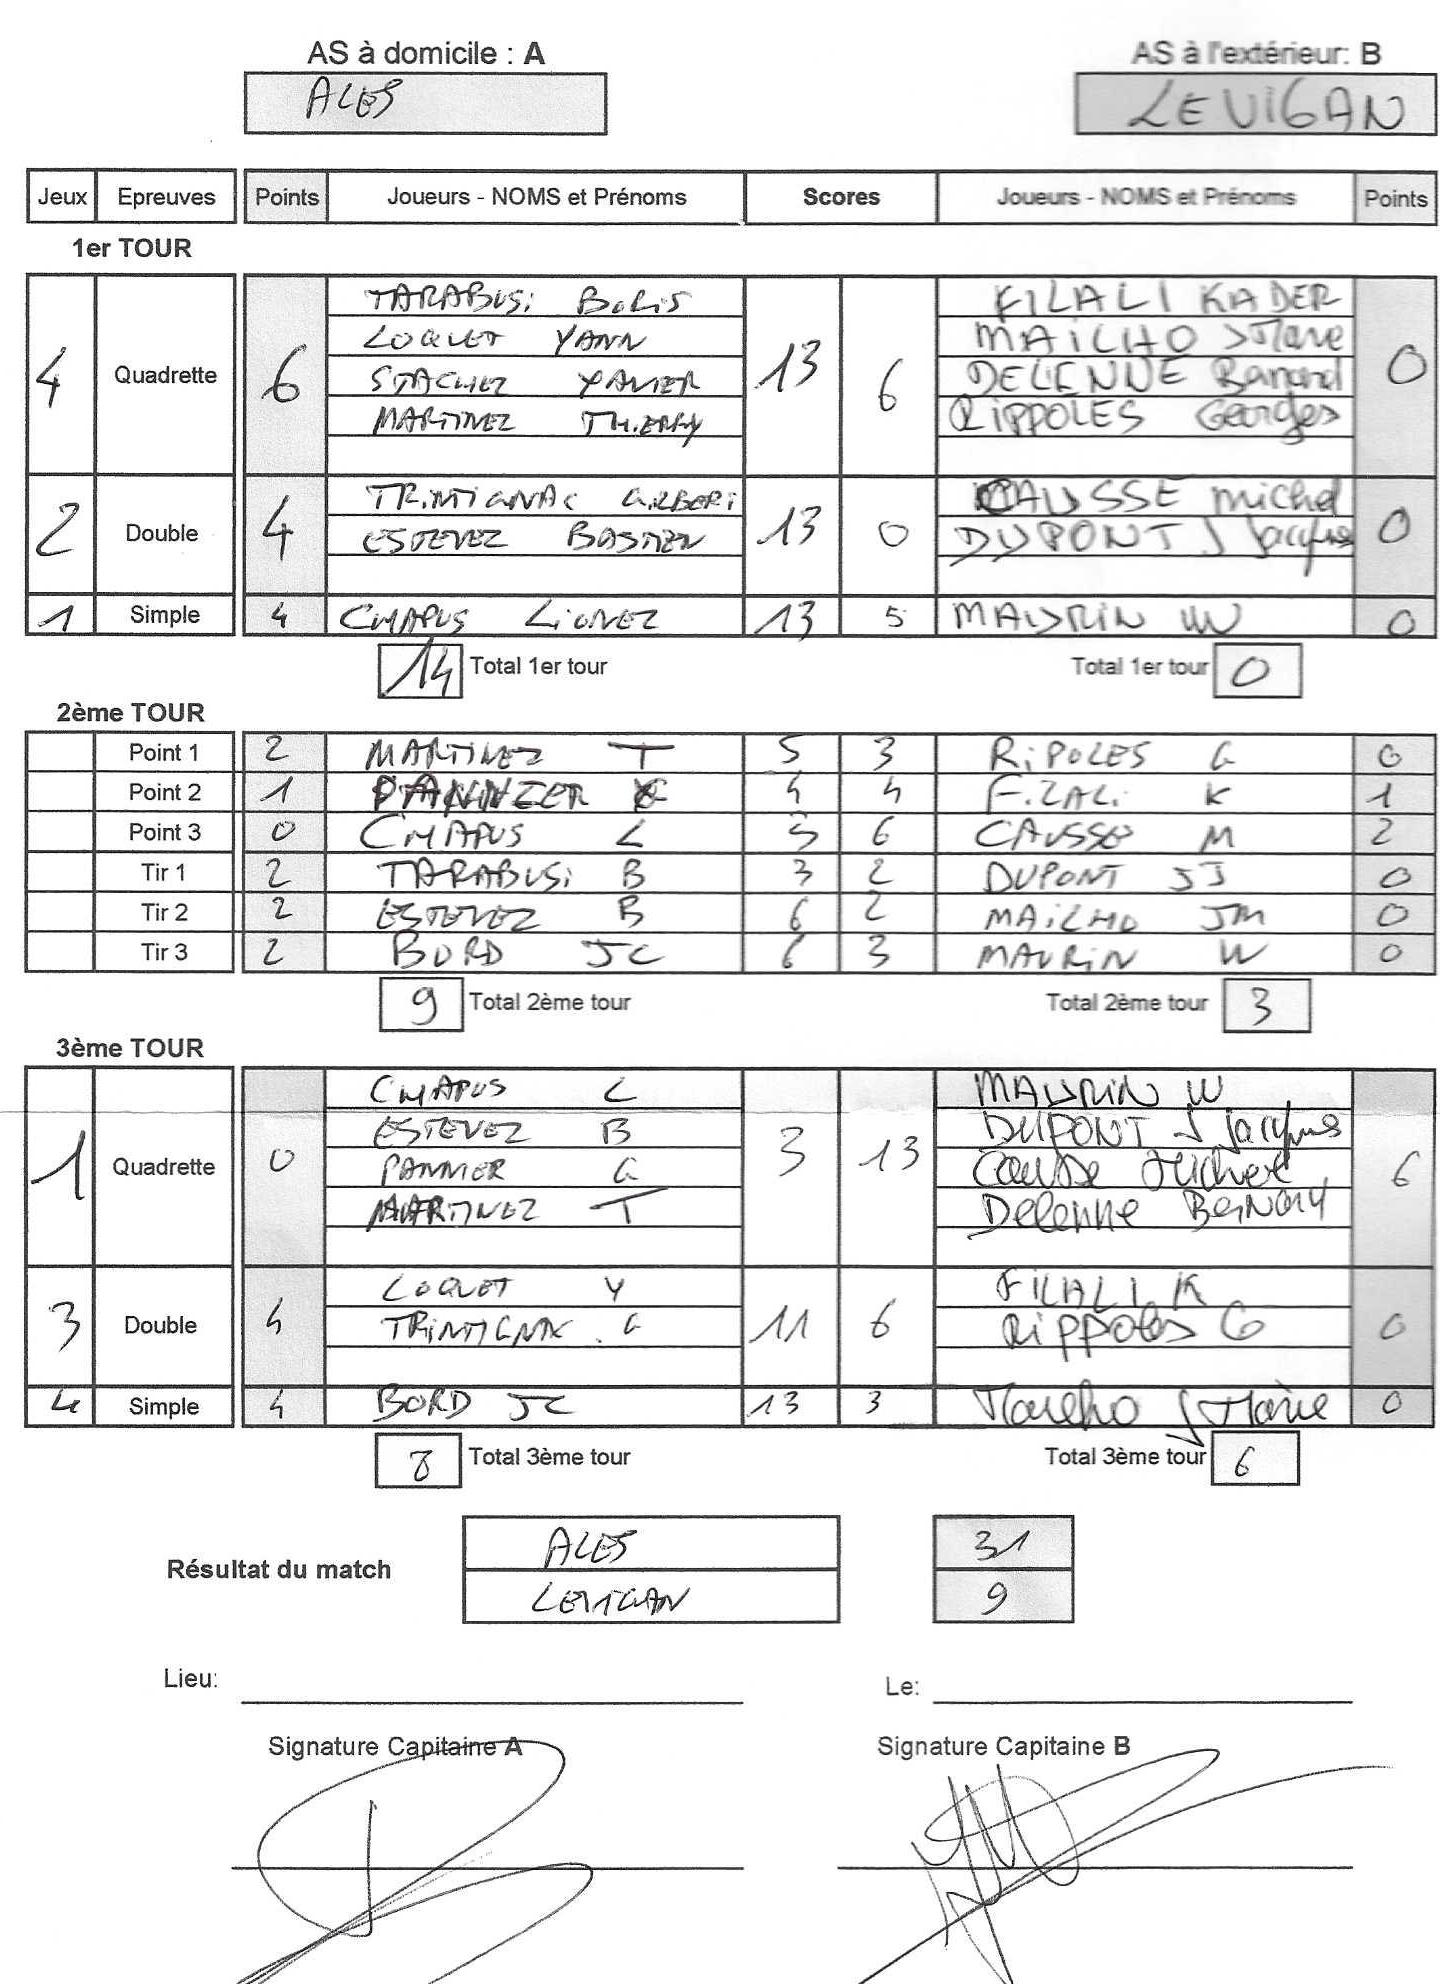 AS à domicile : A
AS à l'extérieur: B
ALES
LE VIGAN
Jeux Epreuves Points Joueurs - NOMS et Prénoms Scores Joueurs - NOMS et Prénoms Points
1er TOUR
4 Quadrette 6 13 6 0
TARABUSi BORiS FILALI KADER
LOQUET YANN MAiLHO J Marie
STACHEZ XAVIER DELENNE Bernard
MARTINEZ THiERRY RIPPOLES Georges
2 Double 4 13 0 0
TRiNTiGNAC GiLBERT CAUSSE Michel
ESTEVEZ BASTIEN DUPONT J Jacques
1 Simple 4 CHAPUS LiONEL 13 5 MAURIN W 0
14 Total 1er tour Total 1er tour 0
2ème TOUR
Point 1 2 MARTINEZ T 5 3 RiPOLES G 0
Point 2 1 4 4 FiLALi K 1
Point 3 0 CHAPUS L 5 6 CAUSSE M 2
Tir 1 2 TARABUSi B 3 2 DUPONT JJ 0
Tir 2 2 ESTEVEZ B 6 2 MAiLHO JM 0
Tir 3 2 BORD JC 6 3 MAURiN W 0
9 Total 2ème tour Total 2ème tour 3
3ème TOUR
1 Quadrette 0 3 13 6
CHAPUS L MAURIN W
ESTEVEZ B DUPONT J Jacques
PANNIER G Causse Michel
MARTINEZ T Delenne Bernard
3 Double 4 11 6 0
LOQUET Y FILALI K
TRiNTiGNAC G Rippoles G
4 Simple 4 BORD JC 13 3 Mailho J Marie 0
8 Total 3ème tour Total 3ème tour 6
Résultat du match
ALES 31
LEVIGAN 9
Lieu:
Le:
Signature Capitaine A
Signature Capitaine B